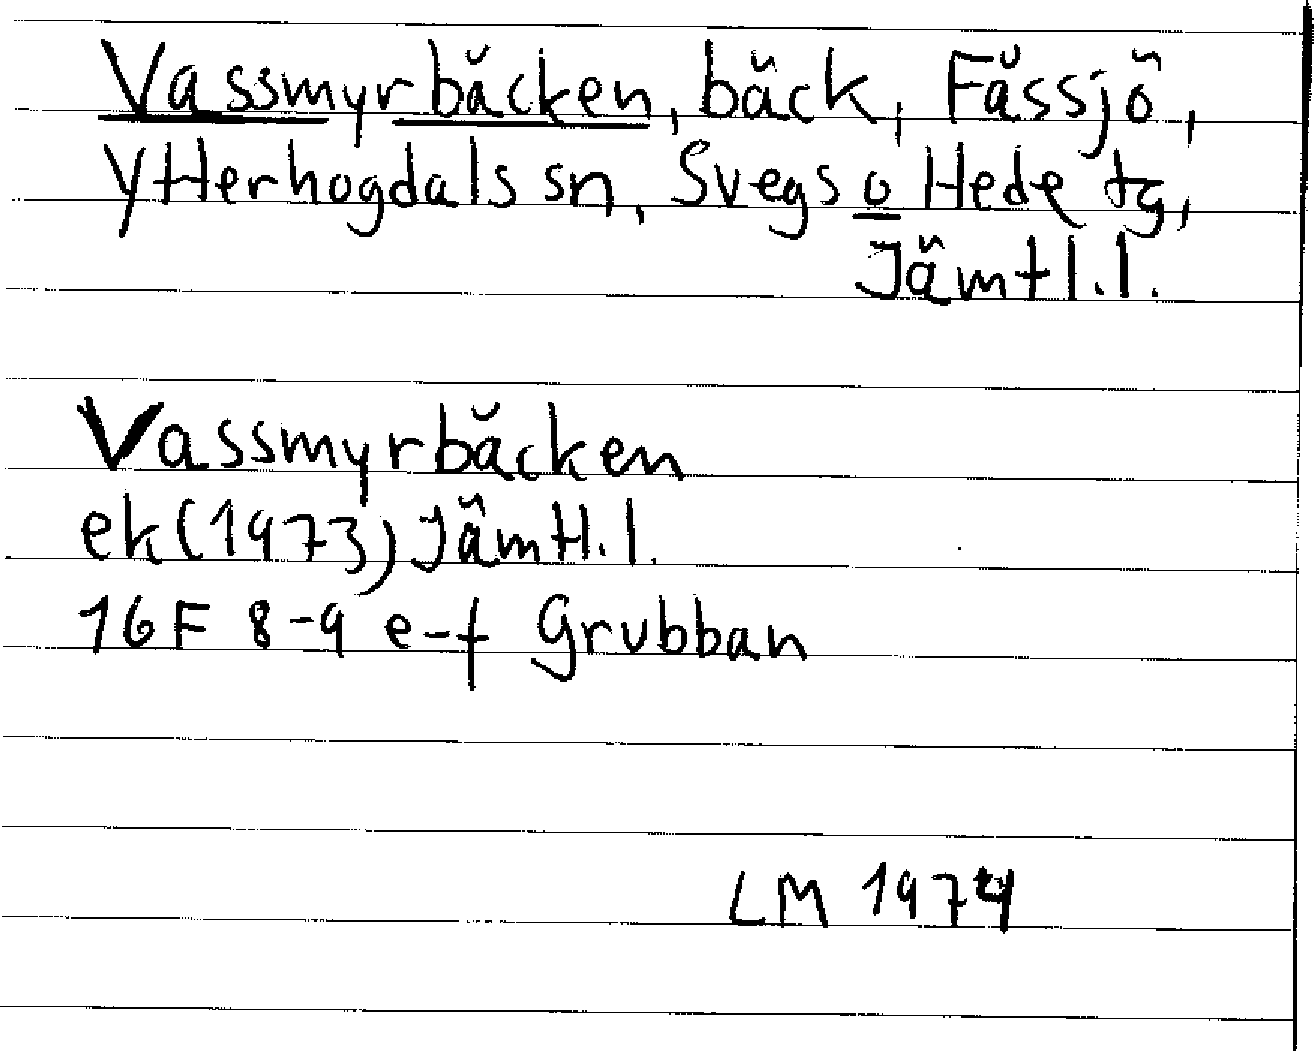 Vassmyrbäcken, bäck, Fåssjö,
Ytterhogdals sn, Svegs o Hede tg,
Jämtl.l.
Vassmyrbäcken
ek(1973) Jämtl.l.
16F 8-9 e-f Grubban
LM 1974